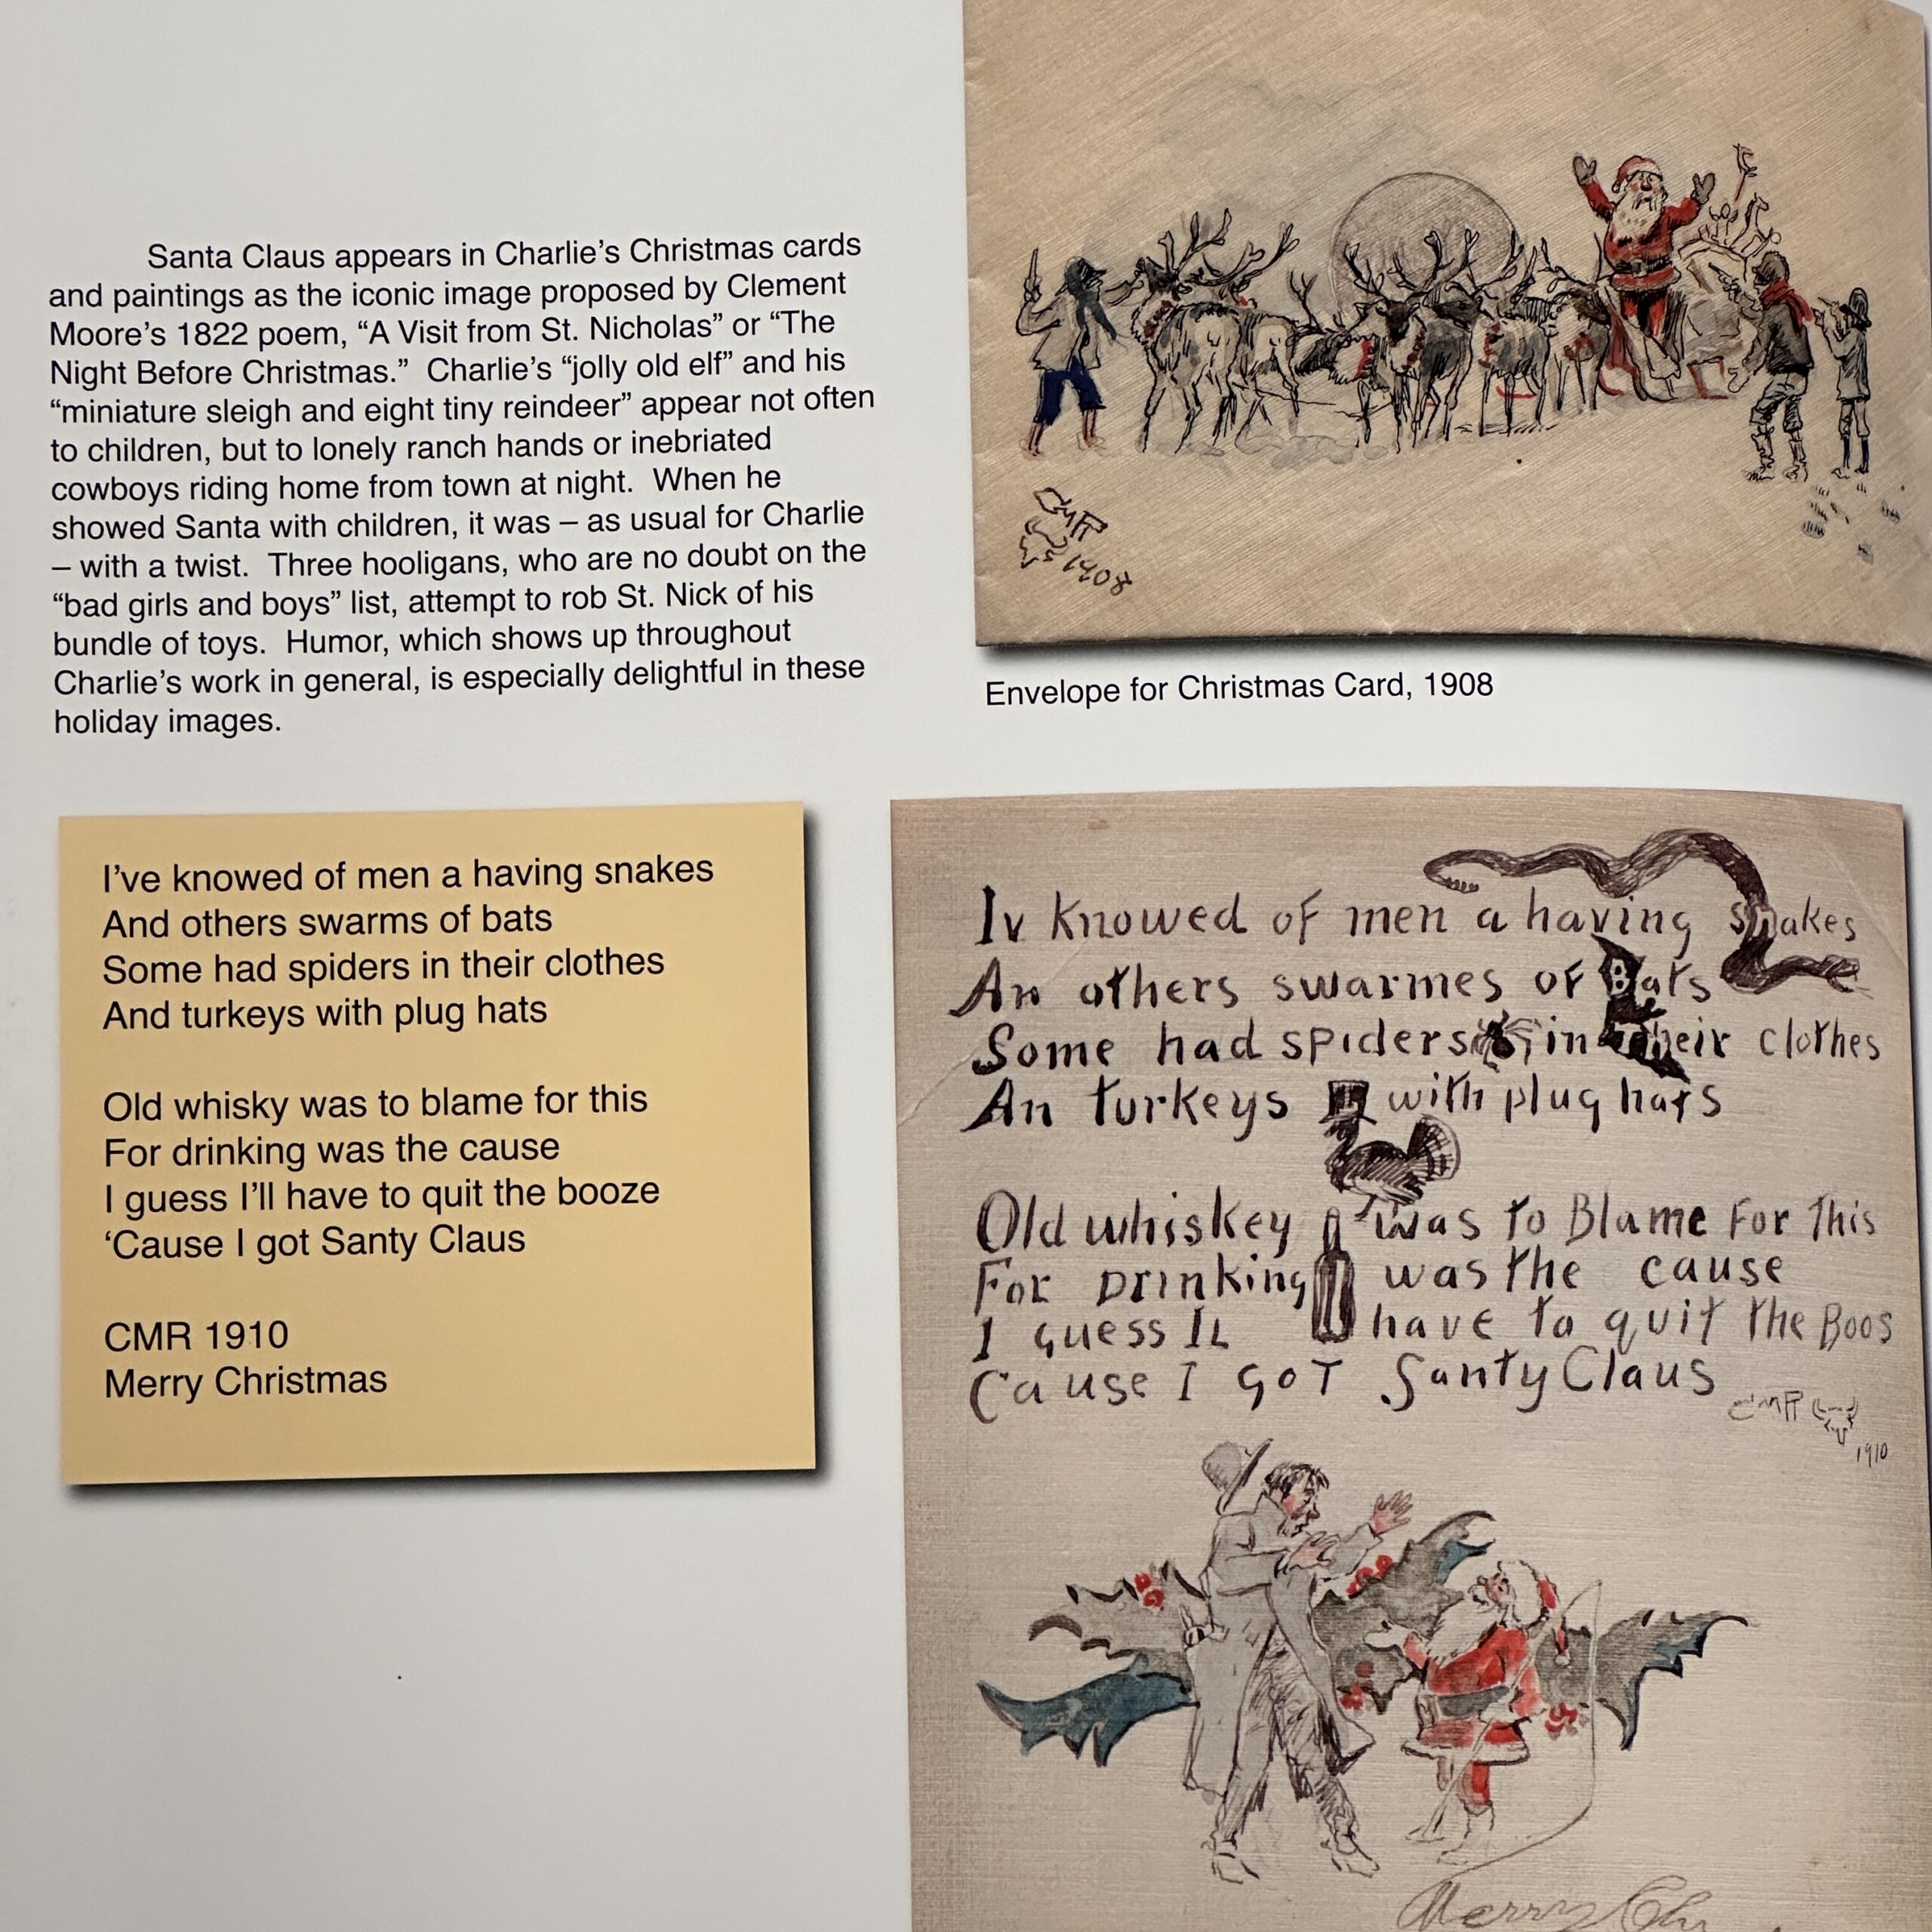 Santa Claus appears in Charlie’s Christmas cards
and paintings as the iconic image proposed by Clement
Moore’s 1822 poem, “A Visit from St. Nicholas” or “The
Night Before Christmas.”  Charlie’s “jolly old elf” and his
“miniature sleigh and eight tiny reindeer” appear not often
to children, but to lonely ranch hands or inebriated
cowboys riding home from town at night.  When he
showed Santa with children, it was – as usual for Charlie
– with a twist.  Three hooligans, who are no doubt on the
“bad girls and boys” list, attempt to rob St. Nick of his
bundle of toys.  Humor, which shows up throughout
Charlie’s work in general, is especially delightful in these
holiday images.
CMR
1908
Envelope for Christmas Card, 1908
I’ve knowed of men a having snakes
And others swarms of bats
Some had spiders in their clothes
And turkeys with plug hats
Old whisky was to blame for this
For drinking was the cause
I guess I’ll have to quit the booze
‘Cause I got Santy Claus
CMR 1910
Merry Christmas
Iv knowed of men a having snakes
An others swarmes of Bats
Some had spiders in their clothes
An turkeys with plug hats
Old whiskey was to Blame For this
For Drinking was the cause
I guess Il have to quit the Boos
Cause I got Santy Claus
CMR
1910
Merry Chr